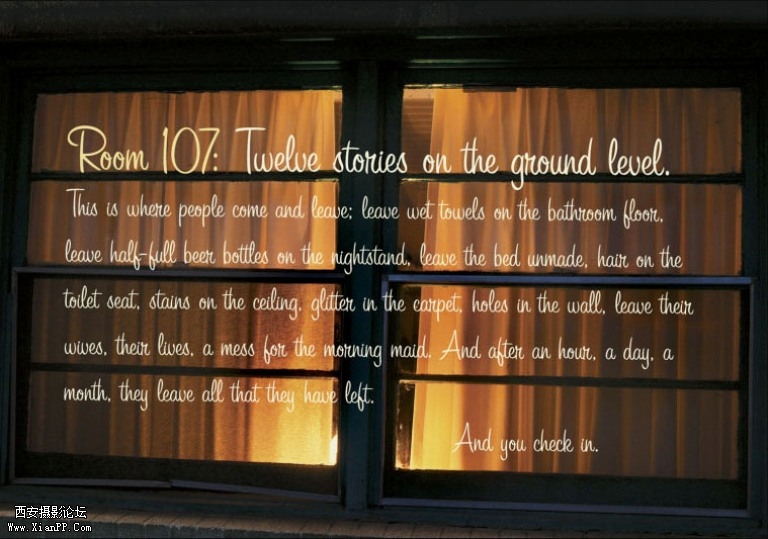 Room 107: Twelve stories on the ground level.
This is where people come and leave; leave wet towels on the bathroom floor,
leave half-full beer bottles on the nightstand, leave the bed unmade, hair on the
toilet seat, stains on the ceiling, glitter in the carpet, holes in the wall, leave their
wives, their lives, a mess for the morning maid. And after an hour, a day, a
month, they leave all that they have left.
And you check in.
西安摄影论坛
Www.XianPP.Com